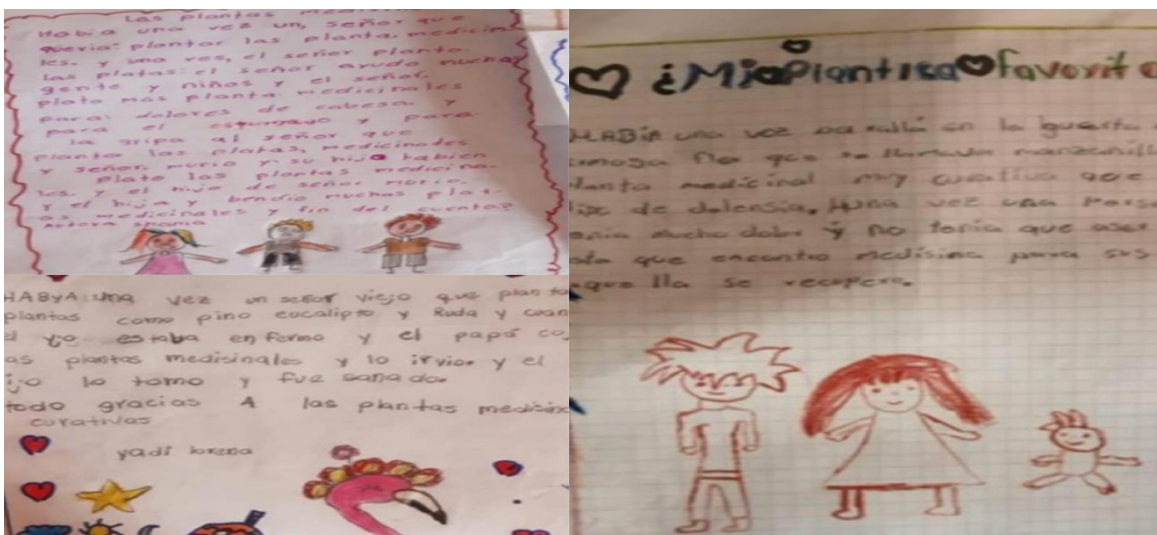 Las plantas
Habia una vez un, señor que
queria: plantar las planta. medicin
les. y una ves, el señor planto.
las platas: el señor ayudo mucha
gente y niños y el señor.
plato mas planta medicinales
para: dolores de cabesa. y
para el estumavo y para
la gripa al señor que
planto las platas, medicinales
y señor. murio y su hijo habien
plato las plantas medicina.
les. y el hijo de señor murio.
y el hija y bendio muchas plat
as medicinales y fin del cuento?
HABYA una vez un señor viejo que planto
plantas como pino eucalipto y Ruda y cuan
el yjo estaba enfermo y el papá co
as plantas medisinales y lo irvio. y el
ijo lo tomo y fue sanado.
todo gracias A las plantas medisin
curativas
yadi lorena
¿Mi Plantica favorit
HABIA una vez en la guerta
que se llamava manzanill
lanta medicinal muy curativa que
de dolensia. Una vez una Perso
enia mucho dolor y no tenia que aser
sta que encontro medísina para sus
que lla se recupero.